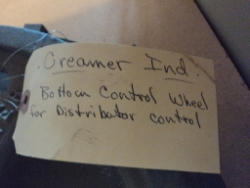 Creamer Ind.
Bottom Control Wheel
for Distributor control